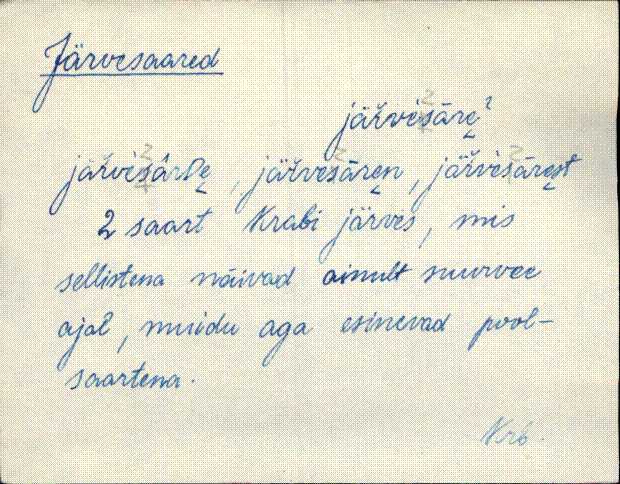 Järvesaared
järvesāre̮ˀ
järvesârDe̮, järvesāre̮n, järvesāre̮st
2 saart Krabi järves, mis
sellistena näivad ainult suurvee
ajal, muidu aga esinevad pool-
saartena.
Krb.